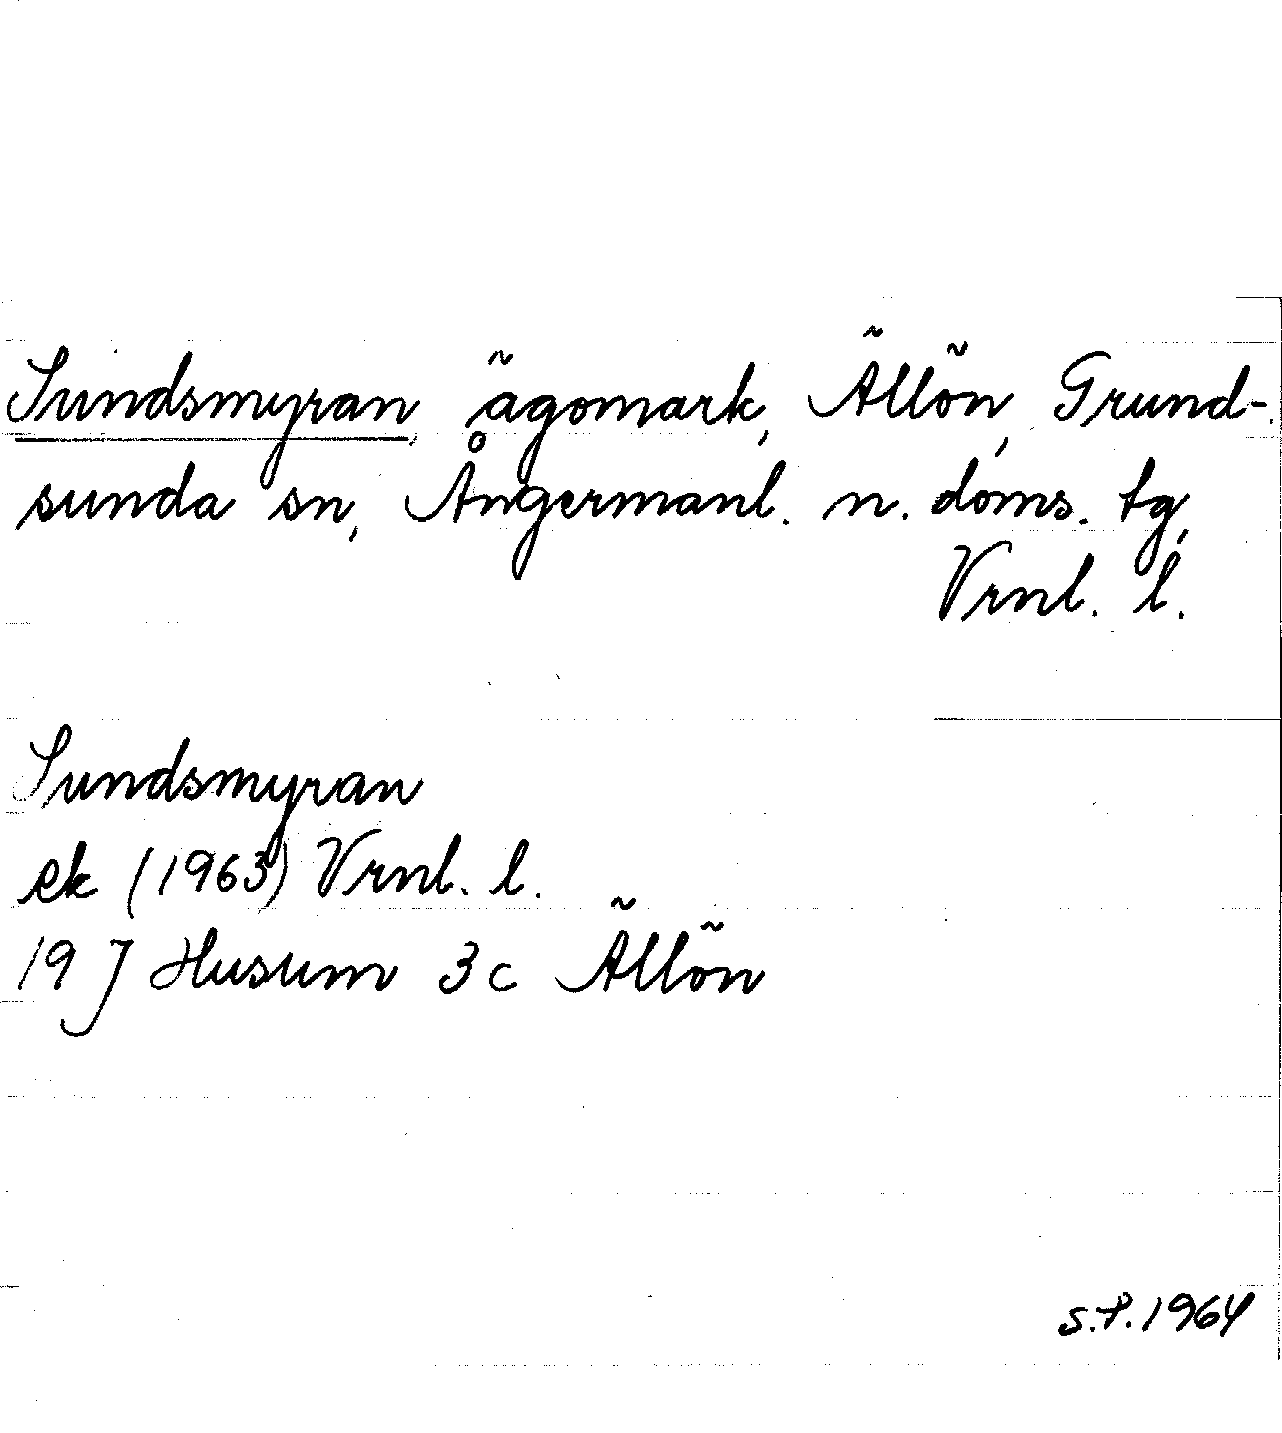 Sundsmyran, ägomark, Ällön, Grund-
sunda sn, Ångermanl. n. doms. tg,
Vrnl. l.
Sundsmyran
ek (1963) Vrnl. l.
19 J Husum 3c Ällön
S.P. 1964